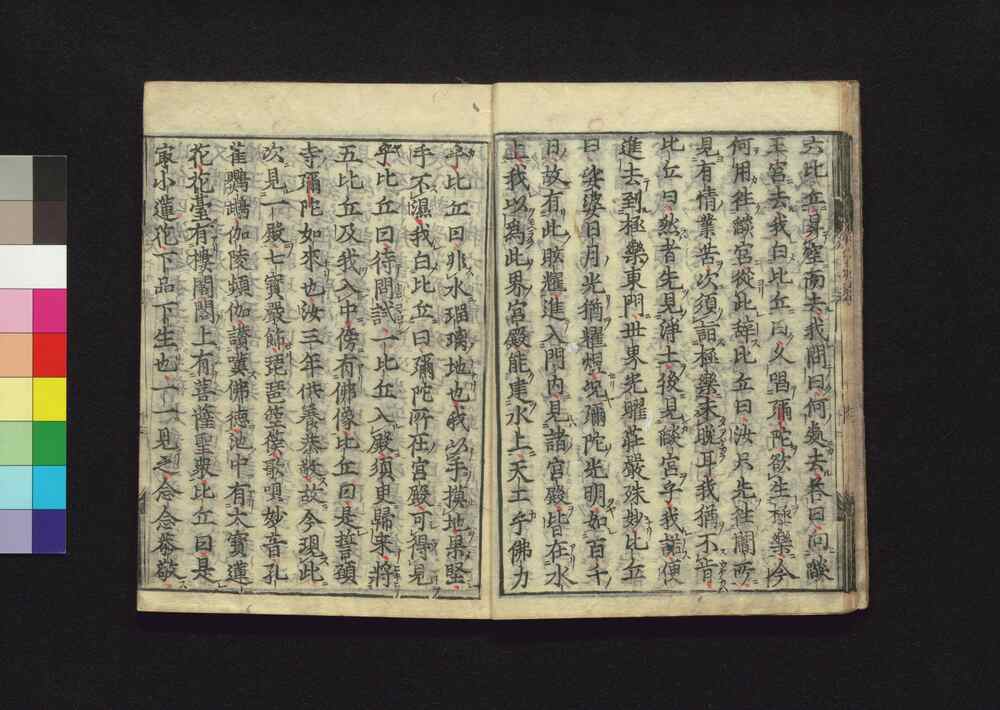 六比丘身座而去我問曰何處去答曰向談
王宮去我白比丘曰久唱彌陀欲生極樂今
何用往談宮從此辞比丘曰汝只先往閻所
見有情業苦次須詣極樂未晩耳我猶不肯
比丘曰然者先見浄土後見談宮乎我諾便
進去到極樂東門世界光曜荘嚴殊妙比丘
曰娑婆日月光猶耀怳况彌陀光明如百千
日故有此眩耀進入門内見諸宮殿皆在水
上我以為此界宮殿能建水上天土乎佛力
乎比丘曰非水瑠璃地也我以手摸地果堅
手不濕我白比丘曰彌陀所在宮殿可得見
乎比丘曰待問試一比丘入殿須臾歸来將
五比丘及我入中傍有佛像比丘曰是誓願
寺彌陀如來也汝三年供養恭敬故今現此
次見一殿七寶嚴飾琵琶箜篌歌唄妙音孔
雀鸚鵡伽陵頻伽讃嘆佛德池中有大寶蓮
花花臺有樓閣閣上有菩薩聖衆比丘曰是
最小蓮花下品下生也一一見之合念恭敬